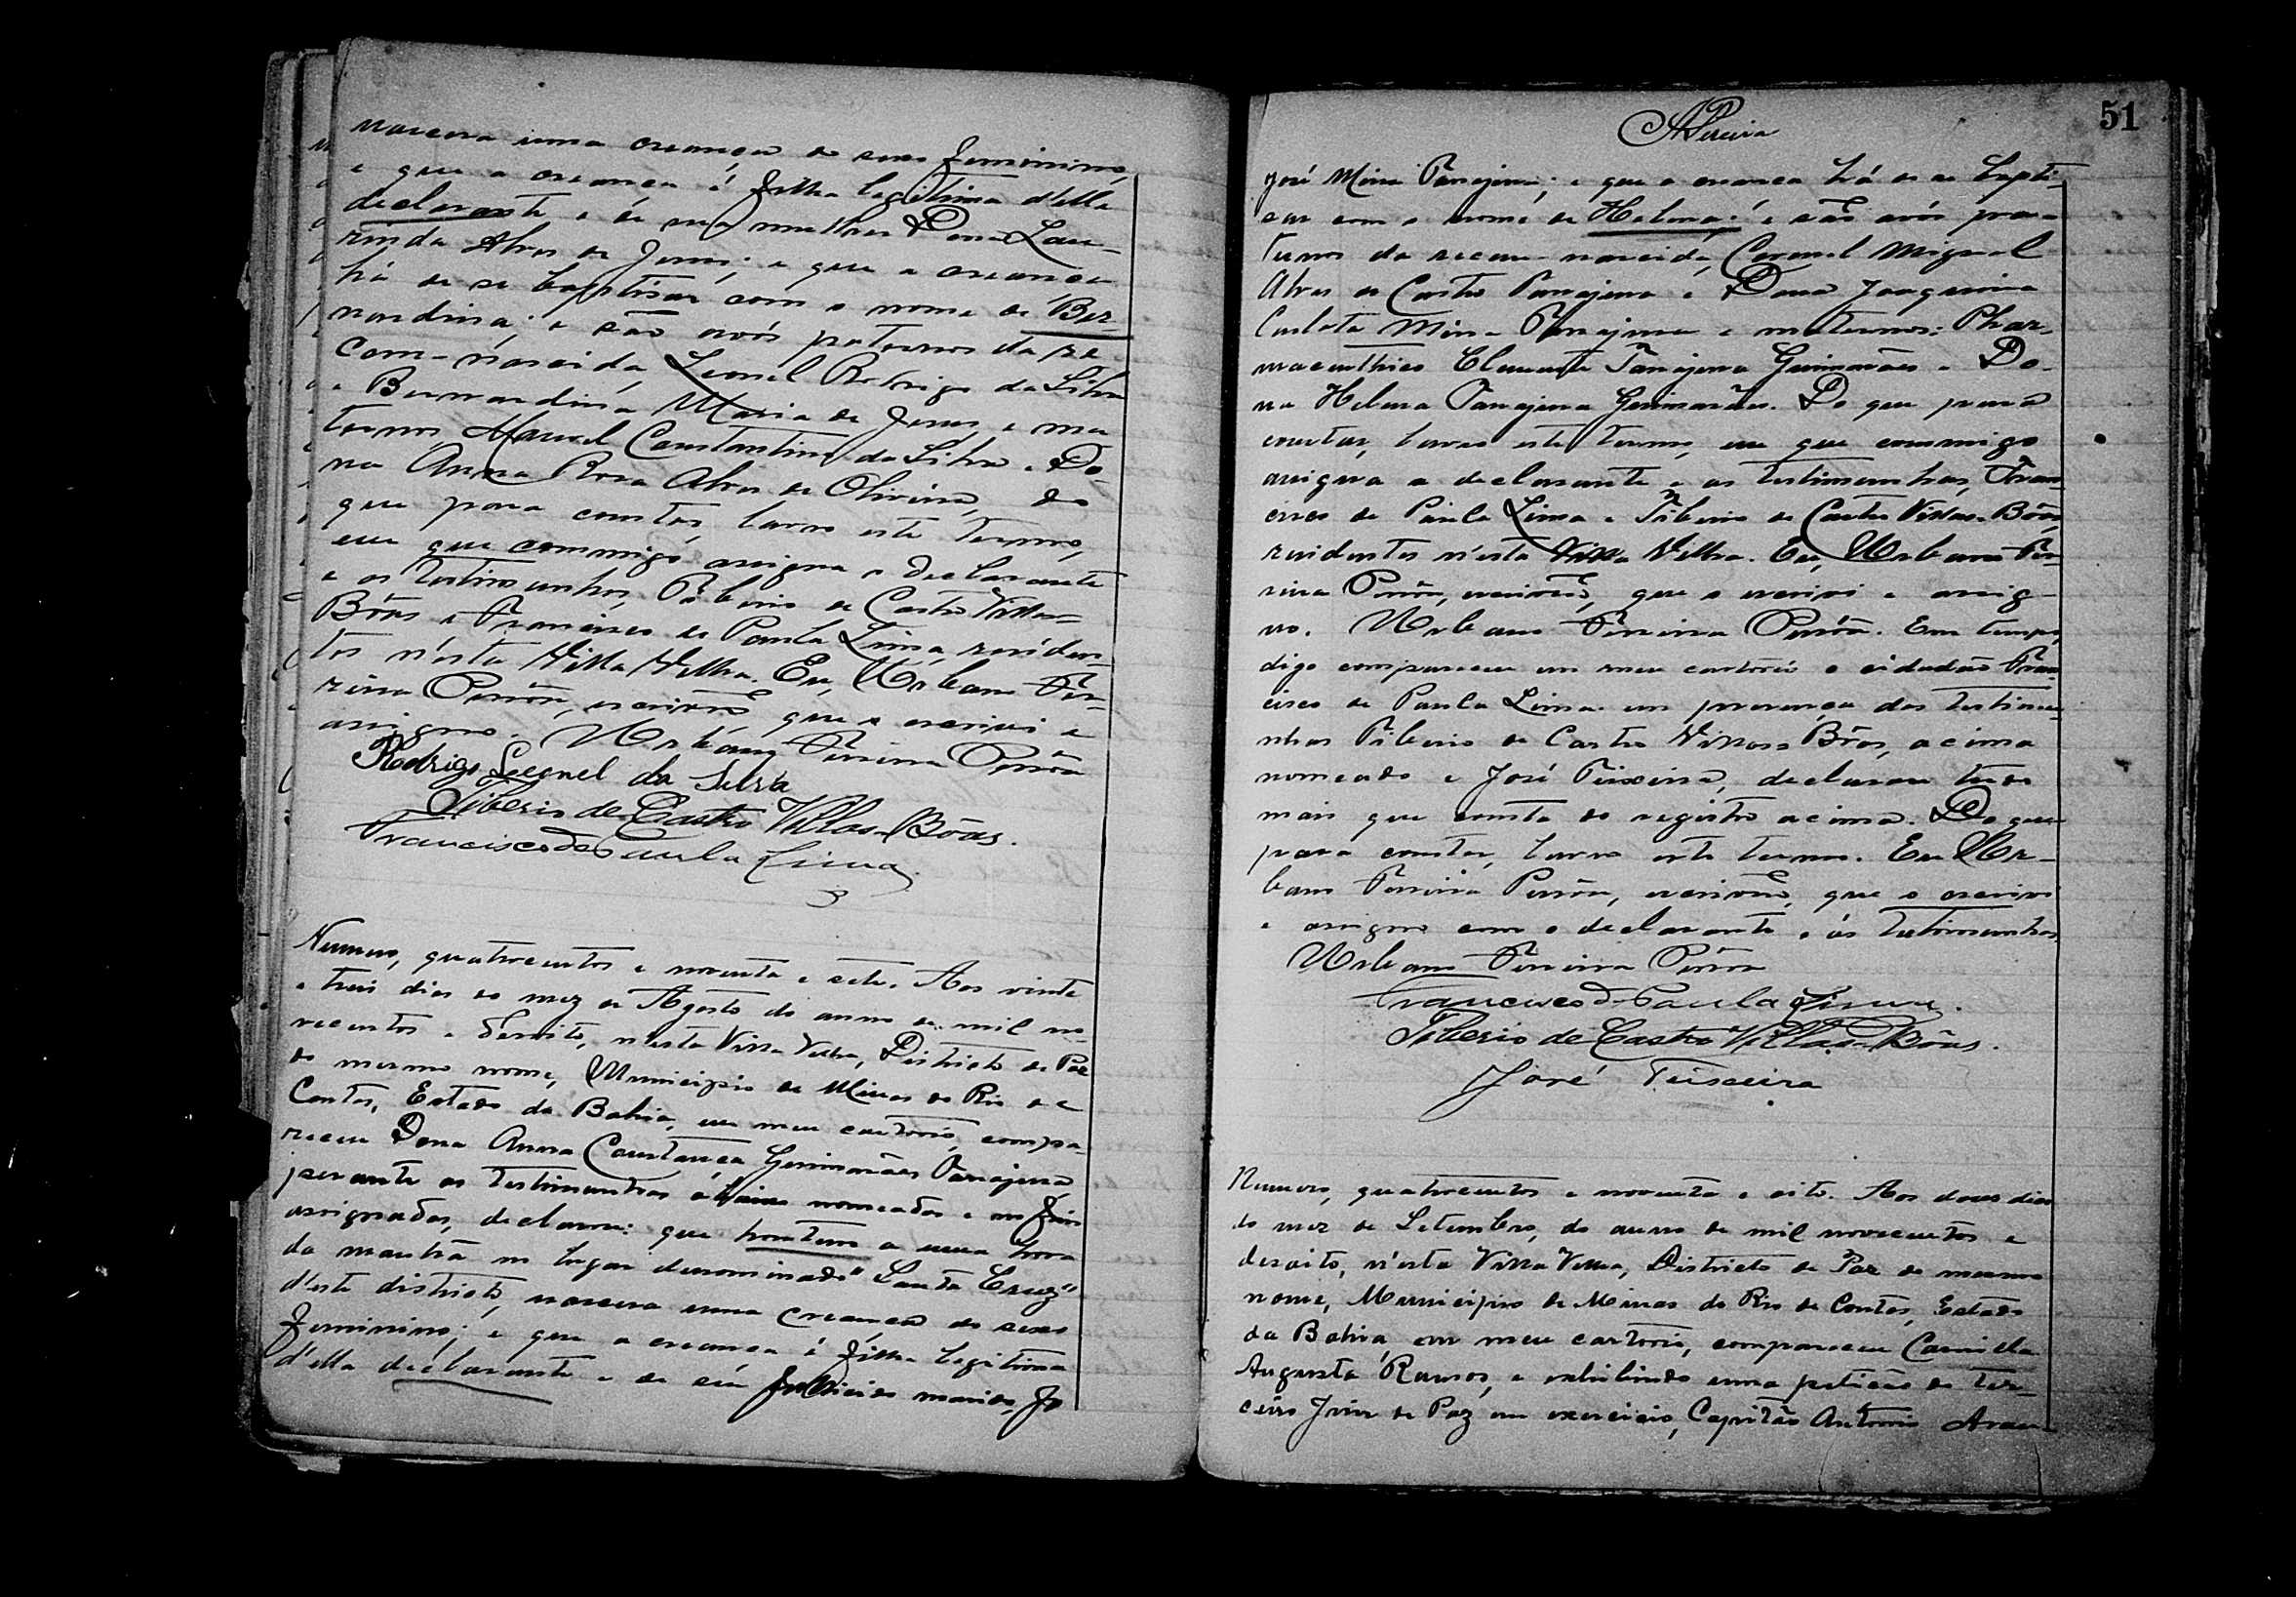 nascera uma creança do sexo feminino,
e que a creança é filha legitima d'elle
declarante e de sua mulher Dona Lau-
rinda Alves de Jesus; e que a creança
há de se baptisar com o nome de Ber-
nardina; e são avós paternos da re-
cem-nascida Leonel Rodrigo da Silva
e Bernardina Maria de Jesus, e ma-
ternos Manoel Constantino da Silva e Do-
na Anna Rosa Alves de Oliveira, do
que para constar, lavro este termo,
em que commigo assigna o declarante
e as testimunhas, Tiberio de Castro Villas-
Bôas e Francisco de Paula Lima, residen-
tes n'esta Villa Velha. Eu, Urbano Fer-
reira, escrivão, que o escrivi e
assigno. Urbano Ferreira
Rodrigo Leonel da Silva
Tiberio de Castro Villas-Bôas.
Francisco de Paula Lima.
Numero, quatrocentos e noventa e sete. Aos vinte
e treis dias do mez de Agosto do anno de mil no-
vecentos e desoito, n'esta Villa Velha, Districto de Paz
do mesmo nome, Municipio de Minas do Rio de
Contas, Estado da Bahia, em meu cartorio, compa-
receu Dona Anna Constança Guimarães Tanajura,
perante as testimunhas abaixo nomeadas e no fim
assignadas, declarou: que hontem a uma hora
da manhã no lugar denominado "Santa Cruz"
d'este districto, nascera uma creança do sexo
feminino; e que a creança é filha legitima
d'ella declarante e de seu fallecido marido, Jo
51
APereira
José Tanajura; e que a creança há de se bapti-
sar com o nome de Helena; e são avós pa-
ternos da recem-nascida, Coronel Miguel
Alves de Castro Tanajura e Dona Joaquina
Carlota Tanajura e maternos: Phar-
maceuthico Clemente Tanajura Guimarães e Do-
na Helena Tanajura Guimarães. Do que para
constar, lavro este termo, em que commigo
assigna a declarante e as testimunhas, Fran-
cisco de Paula Lima e Tiberio de Castro Villas-Bôas,
residentes n'esta Villa Velha. Eu, Urbano Fer-
reira, escrivão, que o escrivi e assig-
no. Urbano Ferreira. Em tempo,
digo compareceu em meu cartorio o cidadão Fran-
cisco de Paula Lima em presença das testimu-
nhas Tiberio de Castro Villas-Bôas, acima
nomeado e José Teixeira, declarou tudo
mais que consta do registro acima. Do que
para constar, lavro este termo. Eu Ur-
bano Ferreira, escrivão, que o escrivi
e assigno com o declarante e as testimunhas.
Urbano Ferreira
Francisco de Paula Lima.
Tiberio de Castro Villas-Bôas.
José Teixeira
Numero, quatrocentos e noventa e oito. Aos dous dias
do mez de Setembro, do anno de mil novecentos e
desoito, n'esta Villa Velha, Districto de Paz do mesmo
nome, Municipio de Minas do Rio de Contas, Estado
da Bahia, em meu cartorio, compareceu Camilla
Augusta Ramos, e exhibindo uma petição do ter-
ceiro Juiz de Paz em exercicio, Capitão Antonio Arau-